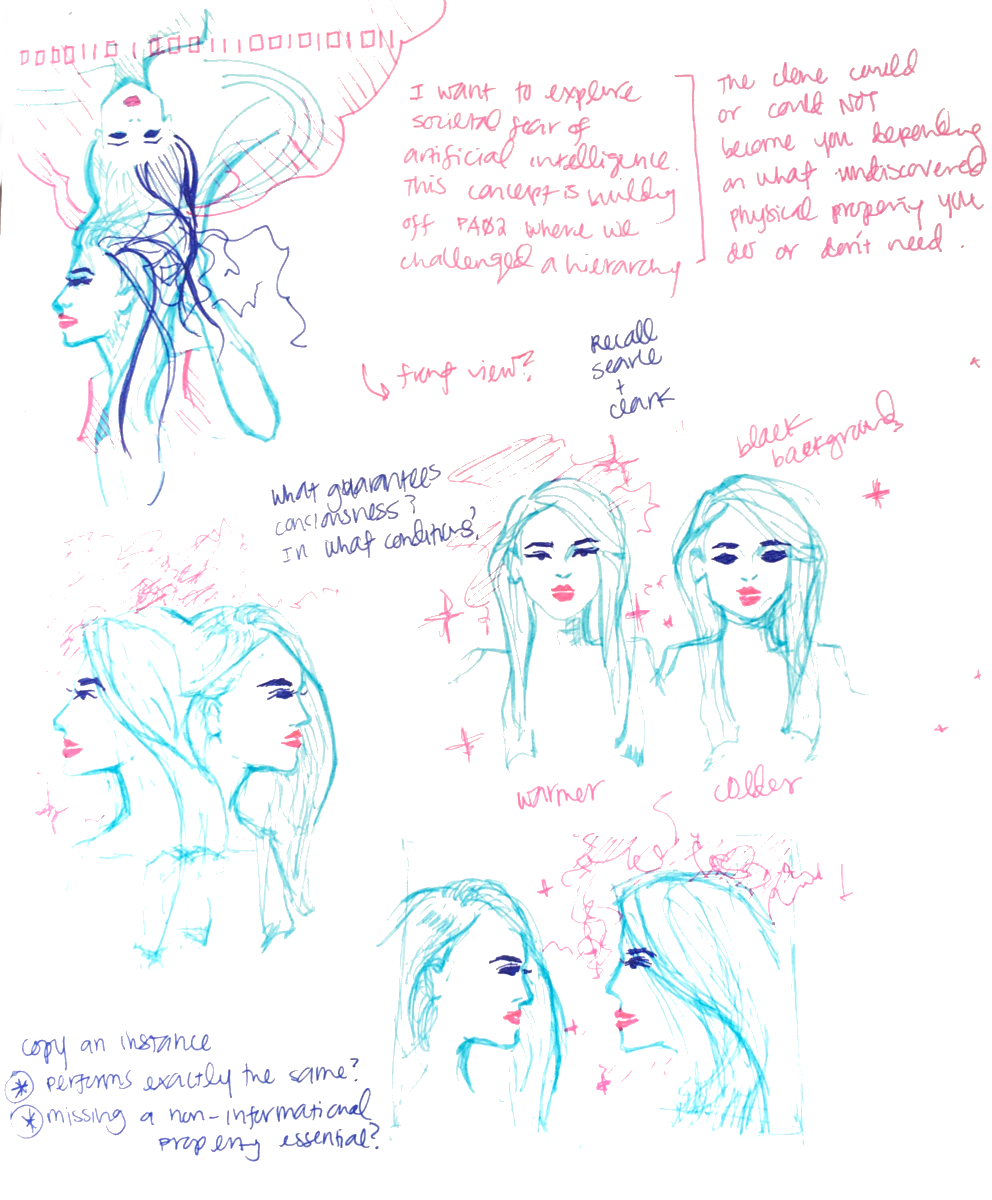 I want to explore
societal fear of
artificial intelligence.
This concept is building
off PA02 where we
challenged a hierarchy
The clone could
or could NOT
become you depending
on what undiscovered
physical property you
do or don't need.
front view?
Recall
searle
+
clark
black
background
What guarantees
conciousness?
In what conditions?
warmer
colder
copy an instance
* performs exactly the same?
* missing a non-informational
property essential?